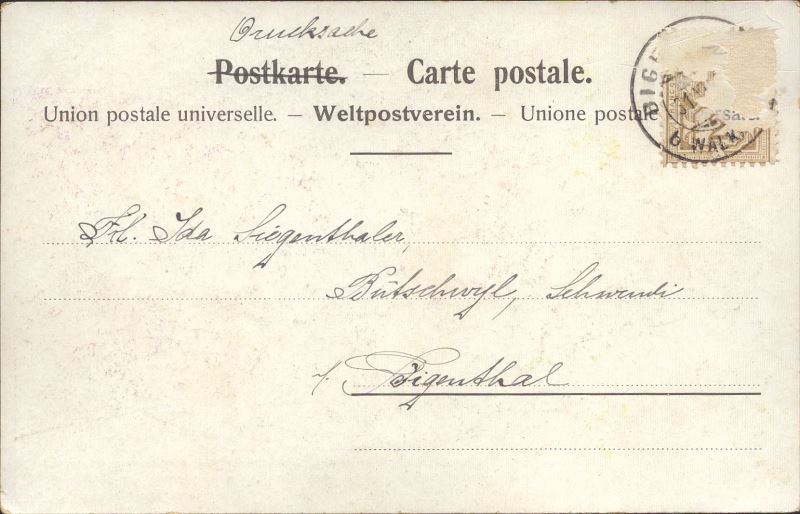 Drucksache
Postkarte. — Carte postale.
Union postale universelle. — Weltpostverein. — Unione postale
BIG
WALK
Frl. Ida Siegenthaler,
Bütschwyl, Schwendi
Bigenthal